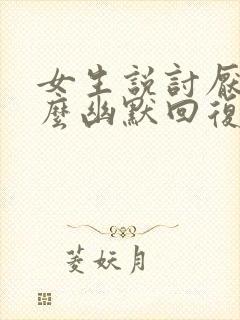 女生説討厭
麼幽默回復
菱妖月